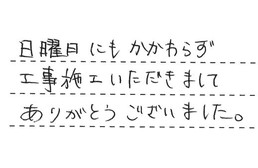 日曜日にもかかわらず
工事施工いただきまして
ありがとうございました。